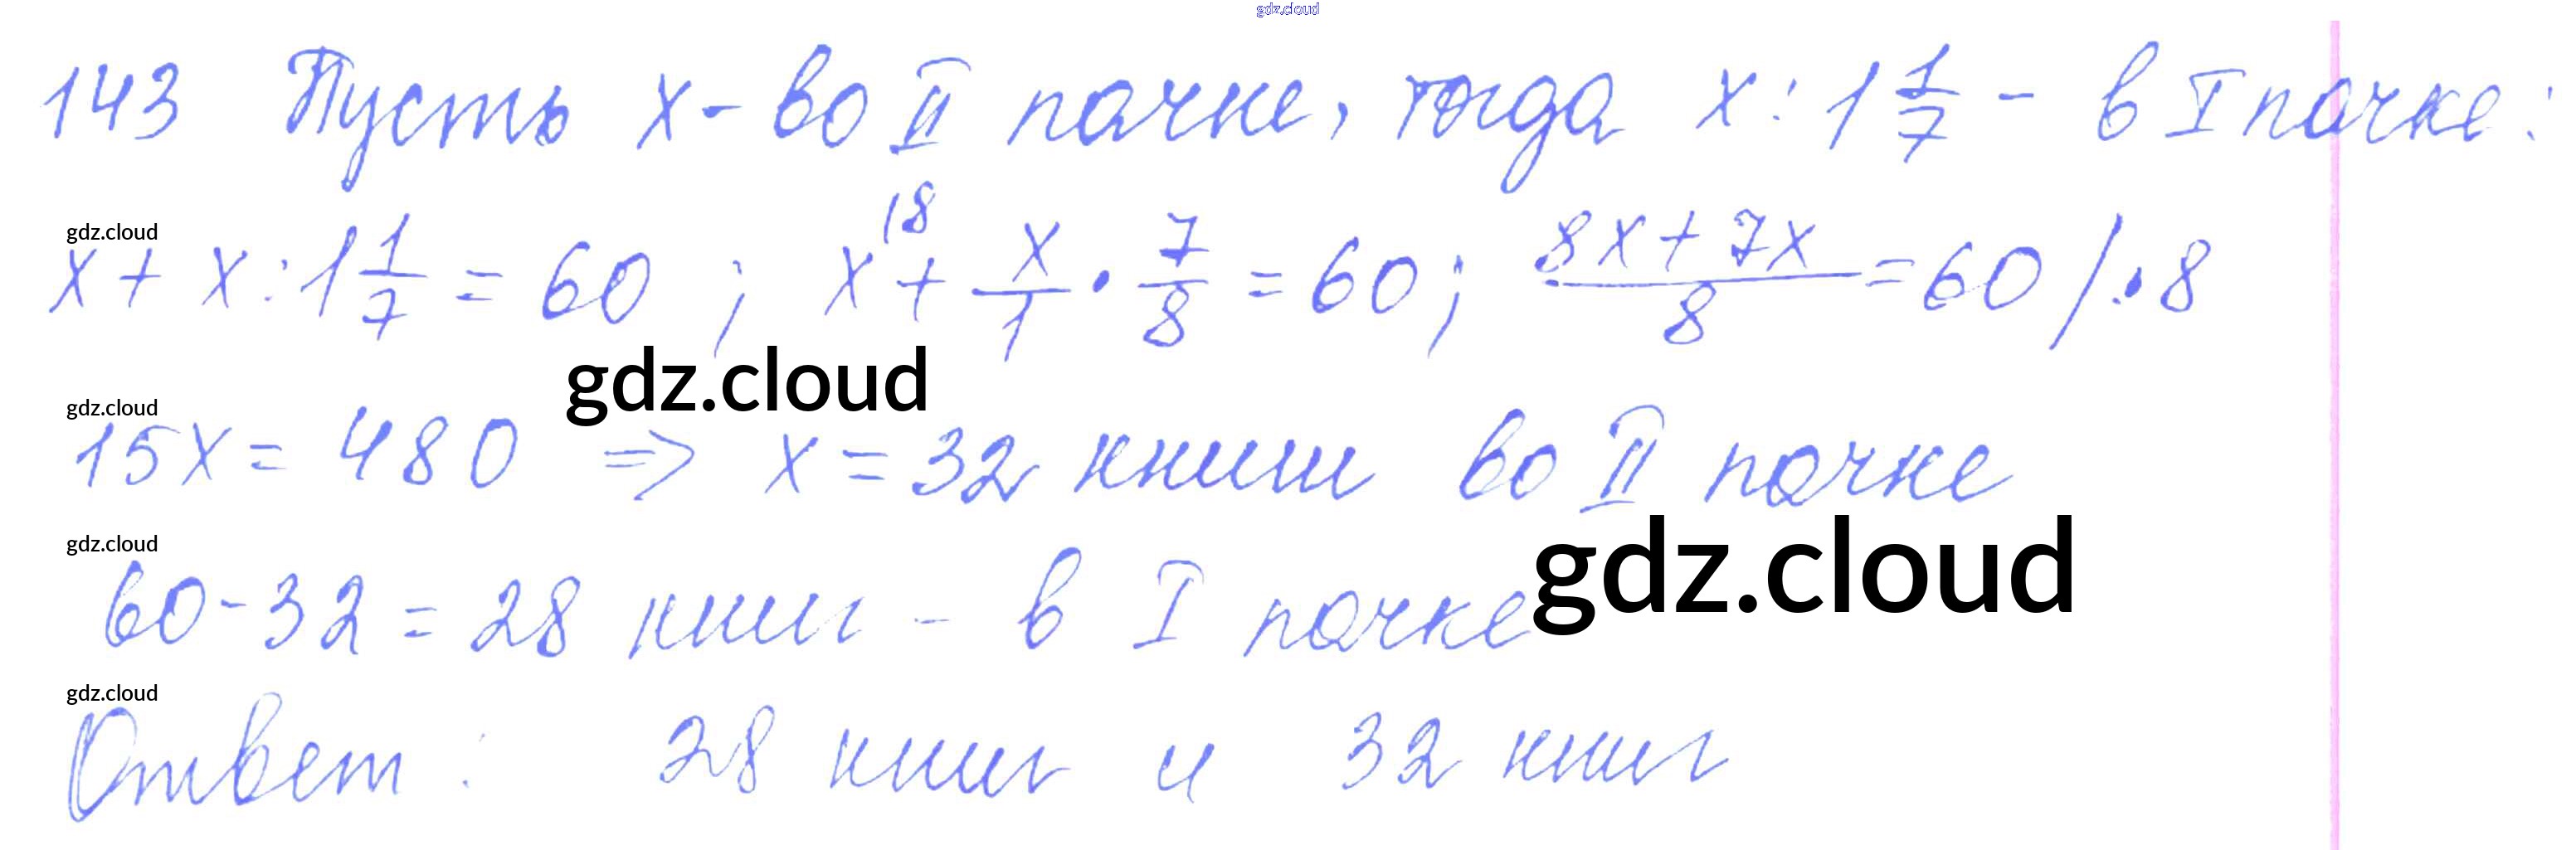 gdz.cloud
143 Пусть x - во II пачке, тогда x : 1 1/7 - в I пачке:
gdz.cloud
x + x : 1 1/7 = 60 ; x |8 + x/1 · 7/8 = 60 ; (8x + 7x)/8 = 60 / · 8
gdz.cloud
gdz.cloud
15x = 480 => x = 32 книги во II пачке
gdz.cloud
gdz.cloud
60 - 32 = 28 книг - в I пачке
gdz.cloud
Ответ : 28 книг и 32 книг